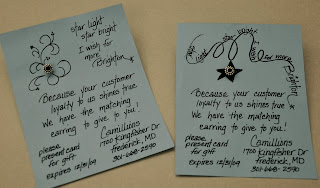 star light
star bright
I wish for
more
Brighton
Because your customer
loyalty to us shines true
We have the matching
earring to give to you!
please
present card
for gift
expires 12/31/09
Camillians
1700 Kingfisher Dr
Frederick, MD
301-668-2590
star bright
for more
Brighton
Because your customer
loyalty to us shines true
We have the matching
earring to give to you!
please
present card
for gift
expires 12/31/09
Camillians
1700 Kingfisher Dr
Frederick, MD
301-668-2590